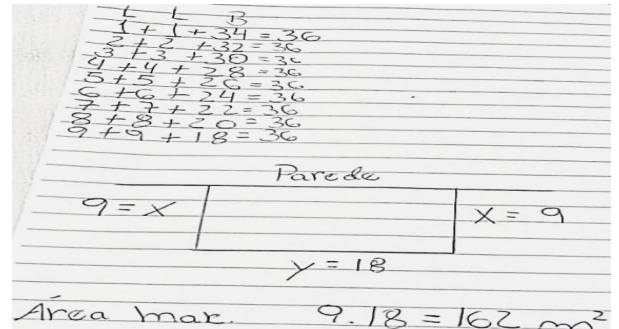 L L B
1 + 1 + 34 = 36
2 + 2 + 32 = 36
3 + 3 + 30 = 36
4 + 4 + 28 = 36
5 + 5 + 26 = 36
6 + 6 + 24 = 36
7 + 7 + 22 = 36
8 + 8 + 20 = 36
9 + 9 + 18 = 36
Parede
9 = x x = 9
y = 18
Área max. 9.18 = 162 m²